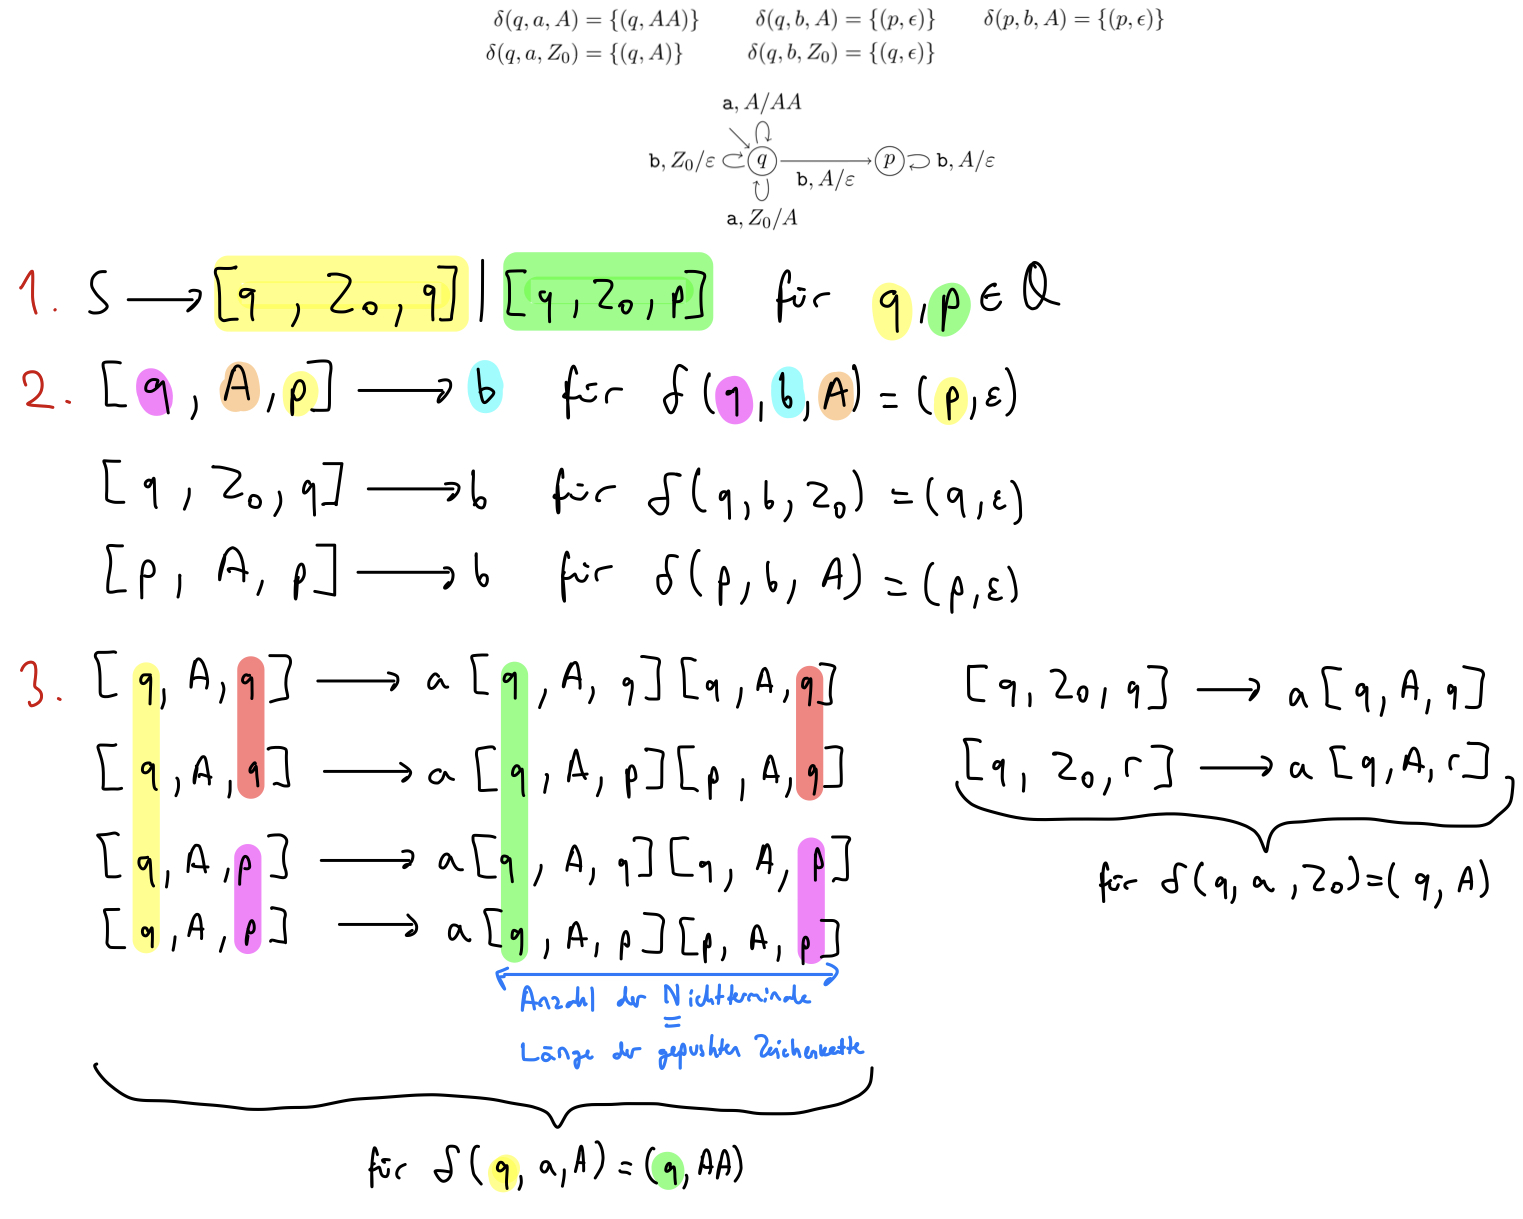 δ(q, a, A) = {(q, AA)} δ(q, b, A) = {(p, ϵ)} δ(p, b, A) = {(p, ϵ)}
δ(q, a, Z₀) = {(q, A)} δ(q, b, Z₀) = {(q, ϵ)}
a, A/AA
b, Z₀/ε q p b, A/ε
b, A/ε
a, Z₀/A
1. S → [q, Z₀, q] | [q, Z₀, p] für q, p ∈ Q
2. [q, A, p] → b für δ(q, b, A) = (p, ε)
[q, Z₀, q] → b für δ(q, b, Z₀) = (q, ε)
[p, A, p] → b für δ(p, b, A) = (p, ε)
3. [q, A, q] → a [q, A, q] [q, A, q]
[q, A, q] → a [q, A, p] [p, A, q]
[q, A, p] → a [q, A, q] [q, A, p]
[q, A, p] → a [q, A, p] [p, A, p]
Anzahl der Nichtterminale
=
Länge der gepushten Zeichenkette
für δ(q, a, A) = (q, AA)
[q, Z₀, q] → a [q, A, q]
[q, Z₀, r] → a [q, A, r]
für δ(q, a, Z₀) = (q, A)